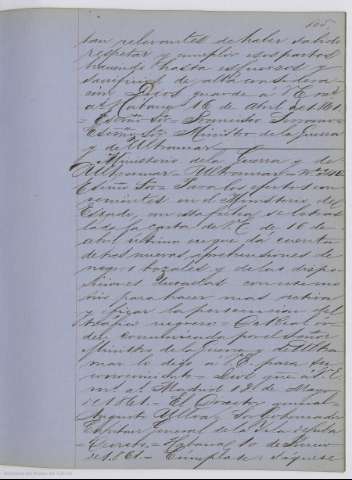 105
tan relevantes de haber sabido
respetar y cumplir esos pactos
haciendo hasta esfuerzos y
sacrificios de alta considera-
cion. Dios guarde á V.E. ms.
as. Habana 16 de Abril de 1861.
- Escmo Sor. - Francisco Serrano -
Escmo Sor. Ministro de la Guerra
y de Ultramar.
Ministerio de la Guerra y de
Ultramar - Ultramar -
Escmo Sor. - Para los efectos con-
venientes en el Ministerio de
Estado, en esta fecha se tras-
lada la carta de V.E. de 16 de
Abril último en que dá cuenta
de tres nuevas aprehensiones de
negros bozales y de las dispo-
siciones dictadas con ese mo-
tivo para hacer mas activa
y eficaz la persecucion del
tráfico negrero. De Real or-
den comunicada por el Señor
Ministro de la Guerra y de Ultra-
mar lo digo á V.E. para su
conocimiento. Dios á V.E.
ms. as. Madrid 12 de Mayo
de 1861. - El Director general
Augusto Ulloa. Sor. Gobernador
Capitan General de la Isla de Cuba
- Habana de Junio
de 1861. - Cúmplase